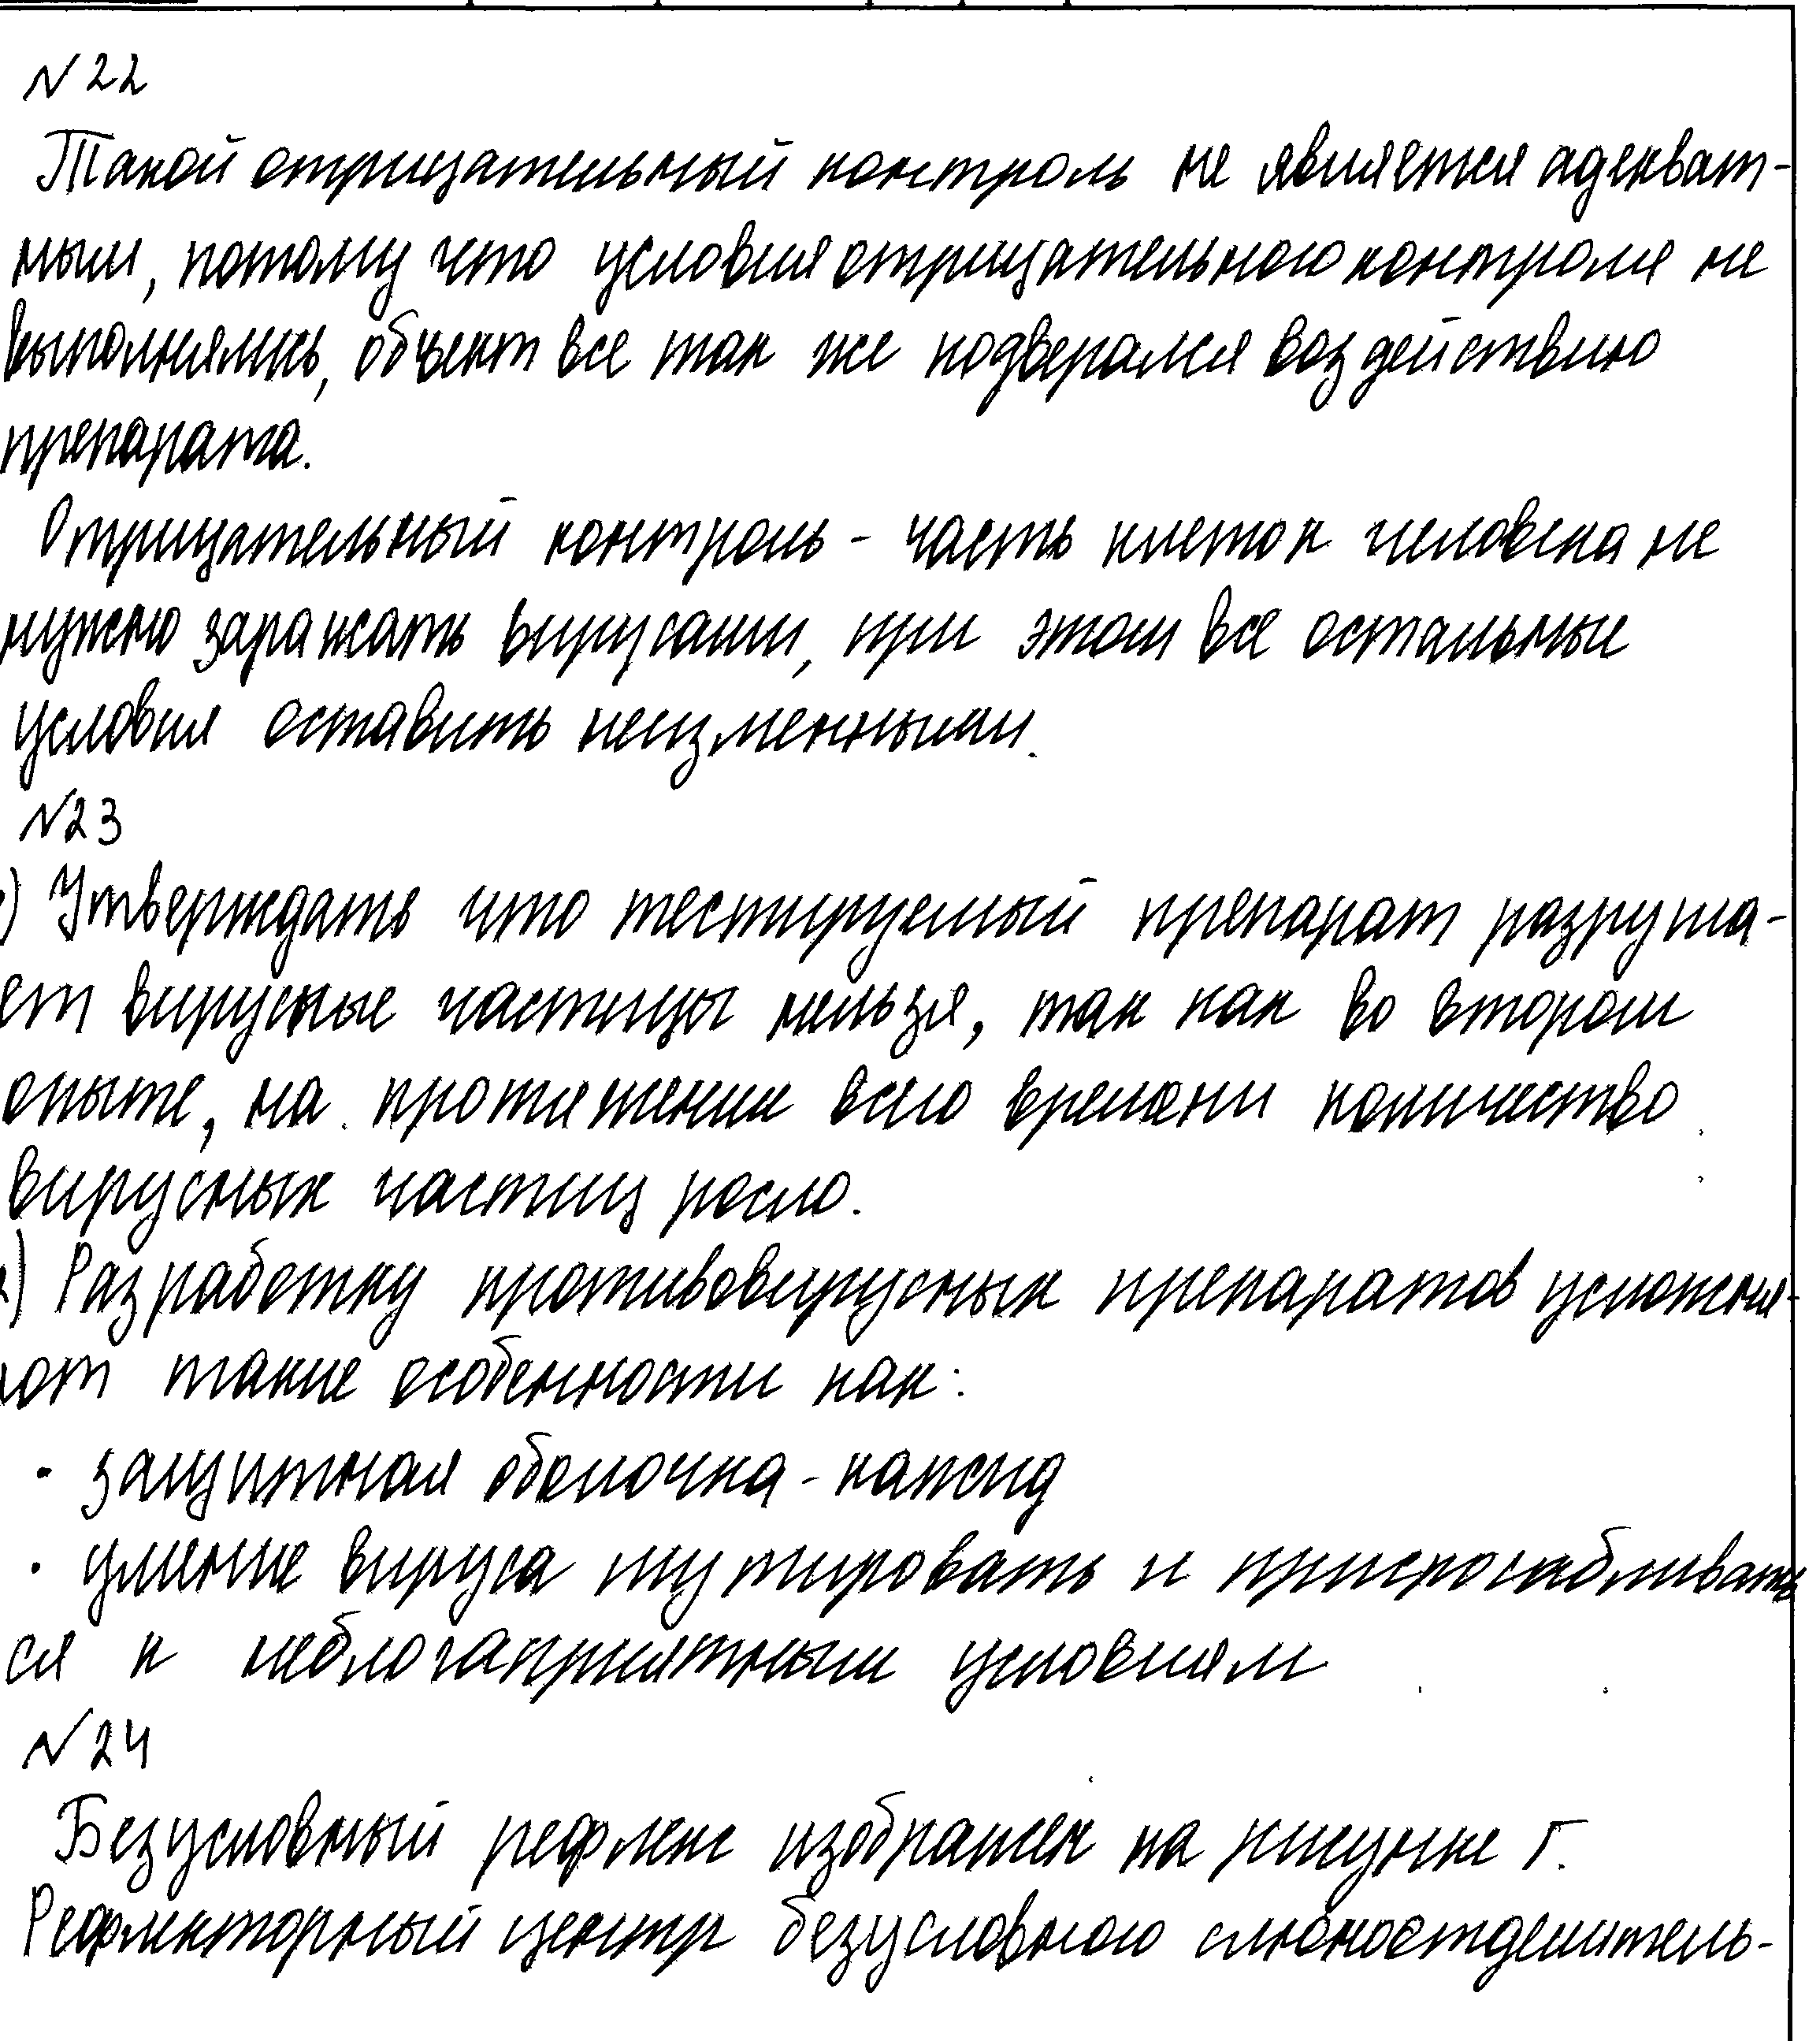 №22
Такой отрицательный контроль не является адекват-
ным, потому что условия отрицательного контроля не
выполнялись, объект все так же подверался воздействию
препарата.
Отрицательный контроль - часть клеток человека не
нужно заражать вирусами, при этом все остальные
условия оставить неизменными.
№23
) Утверждать что тестируемый препарат разруша-
ет вирусные частицы нельзя, так как во втором
опыте, на протяжении всего времени количество
вирусных частиц росло.
) Разработку противовирусных препаратов усложня-
ют такие особенности как:
· защитная оболочка - капсид
· умение вируса мутировать и приспосабливать
ся к неблогаприятным условиям
№24
Безусловный рефлекс изображен на рисунке Г.
Рефлекторный центр безусловного слюноотделитель-